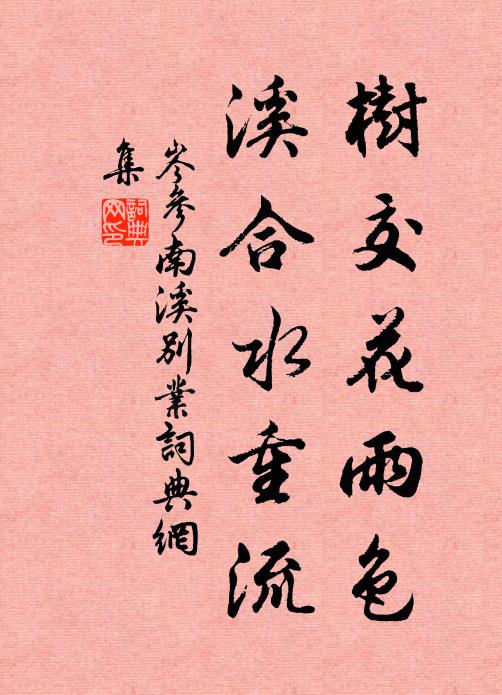 樹交花兩色
溪合水重流
岑參南溪別業詞典網
集
詞典
网印